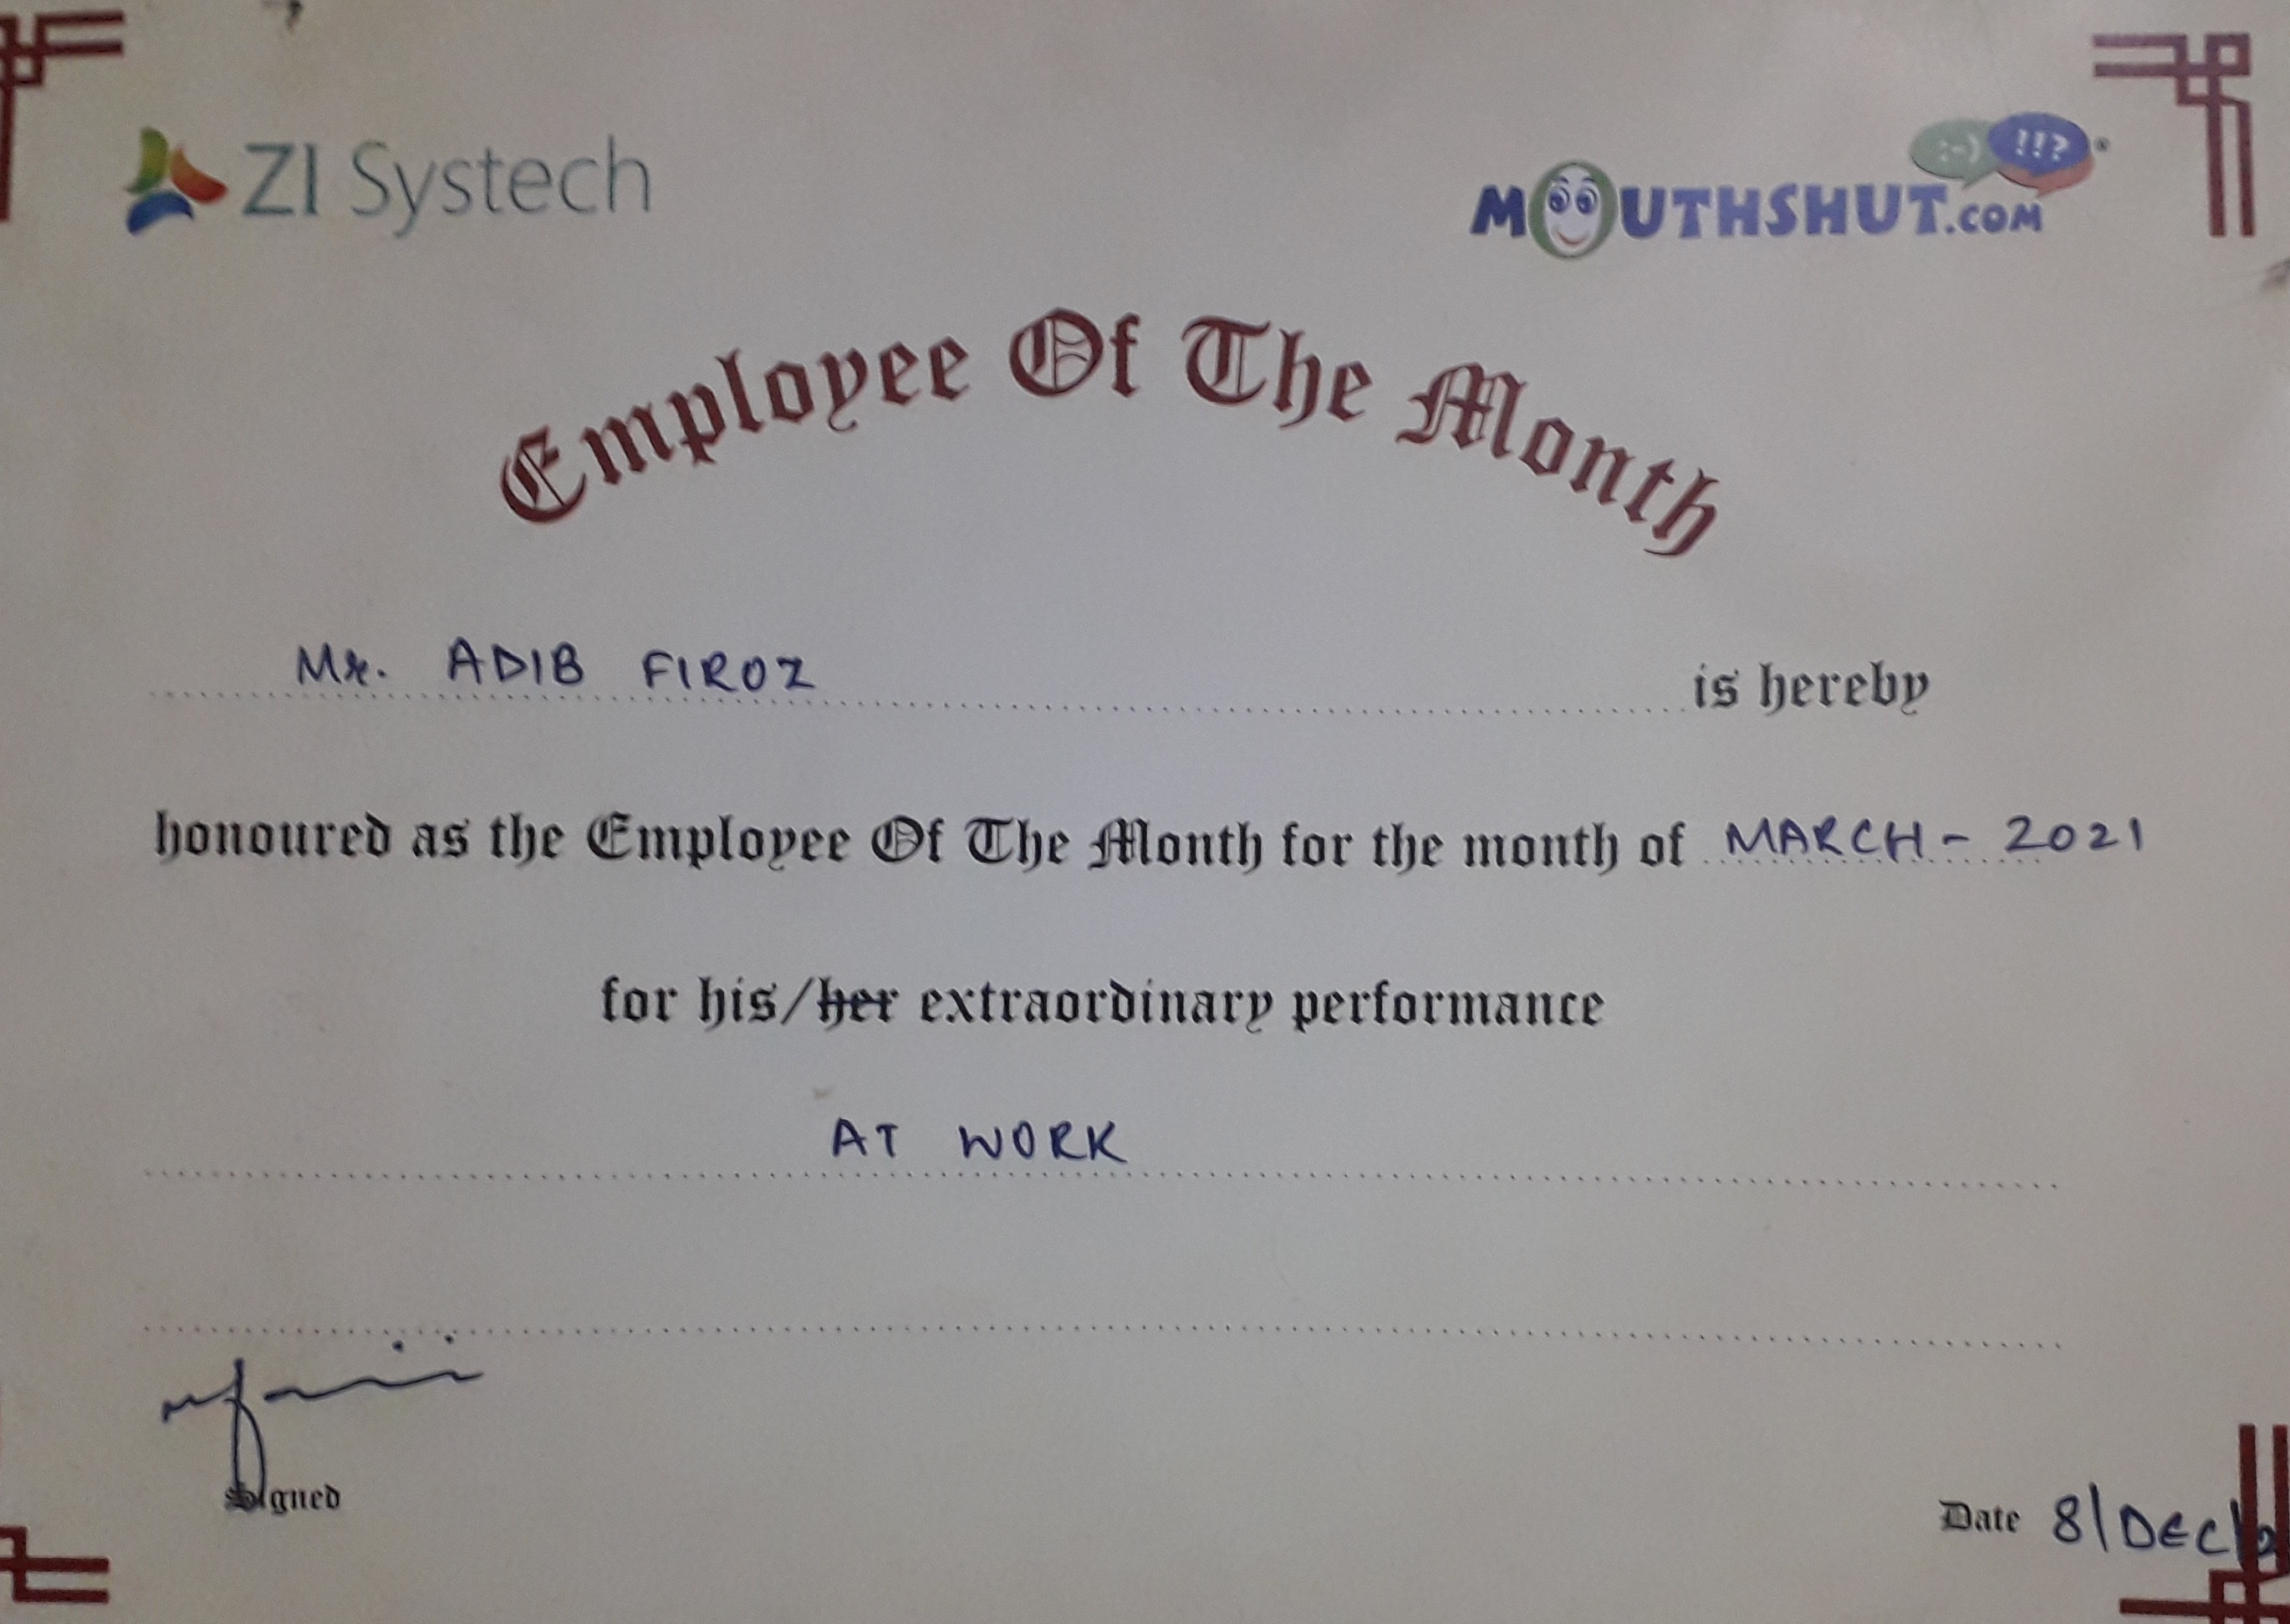 ZI Systech
MOUTHSHUT.COM
:-) !!? ®
Employee Of The Month
Mr. ADIB FIROZ is hereby
honoured as the Employee Of The Month for the month of MARCH - 2021
for his/her extraordinary performance
AT WORK
Signed
Date 8/DEC/